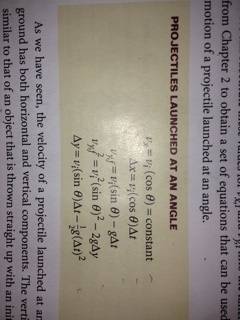 from Chapter 2 to obtain a set of equations that can be used
motion of a projectile launched at an angle.
PROJECTILES LAUNCHED AT AN ANGLE
vₓ = vᵢ (cos θ) = constant
Δx = vᵢ(cos θ)Δt
v_y,f = vᵢ(sin θ) − gΔt
v_y,f² = vᵢ²(sin θ)² − 2gΔy
Δy = vᵢ(sin θ)Δt − ½g(Δt)²
As we have seen, the velocity of a projectile launched at an
ground has both horizontal and vertical components. The verti
similar to that of an object that is thrown straight up with an ini